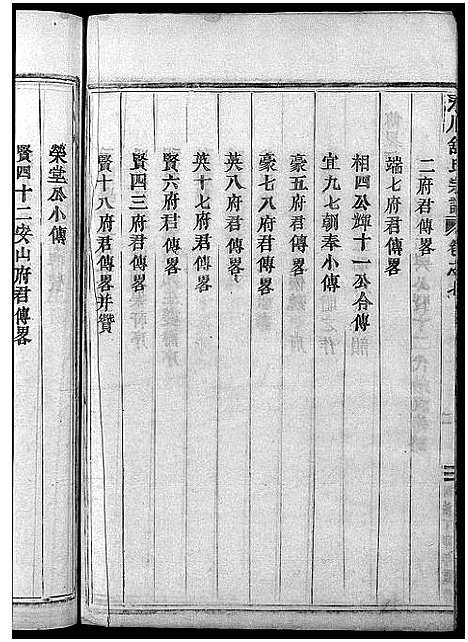 舒氏宗譜 卷之七
二府君傳畧
端七府君傳畧
相四公輝十一公合傳
宜九七朝奉小傳
豪五府君傳畧
豪七八府君傳畧
英八府君傳畧
英十七府君傳畧
賢六府君傳畧
賢四三府君傳畧
賢十八府君傳畧并贊
榮堂公小傳
賢四十二安山府君傳畧